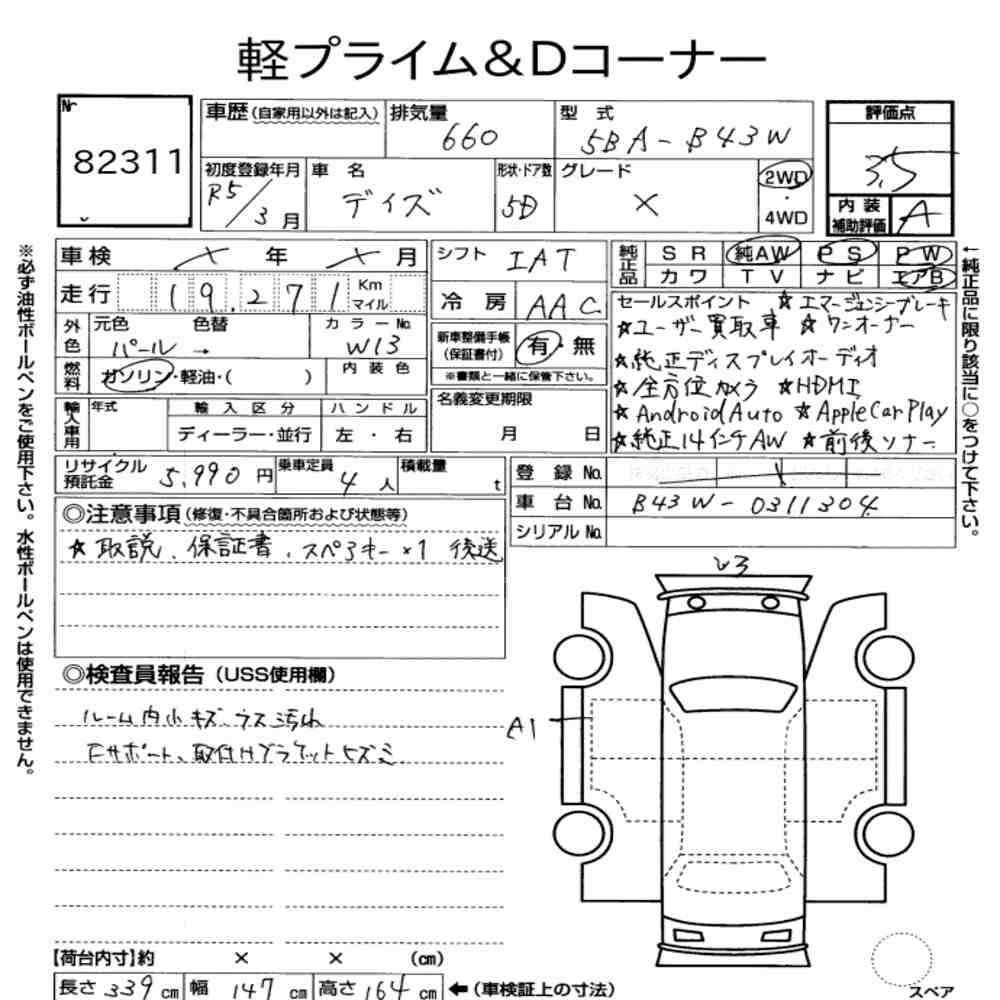 軽プライム&Dコーナー
Nr
82311
車歴(自家用以外は記入)
排気量
660
型 式
5BA-B43W
評価点
3.5
初度登録年月
R5/3月
車 名
デイズ
形状・ドア数
5D
グレード
X
2WD
・
4WD
内 装
補助評価
A
※必ず油性ボールペンをご使用下さい。水性ボールペンは使用できません。
車検 年 月
シフト IAT
純正品
SR 純AW PS PW
カワ TV ナビ エアB
走行 19,271 Km
マイル
冷房 AAC
セールスポイント ☆エマージェンシーブレーキ
☆ユーザー買取車 ☆ワンオーナー
☆純正ディスプレイオーディオ
☆全方位カメラ ☆HDMI
☆AndroidAuto ☆AppleCarPlay
☆純正14インチAW ☆前後ソナー
外色
元色 色替
パール →
カラーNo.
W13
新車整備手帳
(保証書付)
有・無
※書類と一緒に保管下さい。
燃料
ガソリン・軽油・( )
内装色
名義変更期限
月 日
輸入車用
年式
輸入区分
ハンドル
ディーラー・並行
左・右
リサイクル
預託金
5,990円
乗車定員
4人
積載量
t
登録No.
車台No. B43W-0311304
シリアルNo.
←純正品に限り該当に○をつけて下さい。
◎注意事項(修復・不具合箇所および状態等)
☆取説、保証書、スペアキー×1 後送
◎検査員報告(USS使用欄)
ルーム内小キズ、ウス汚れ
Fサポート、取付けブラケットヒズミ
A1
【荷台内寸】約 × × (cm)
長さ 339 cm 幅 147 cm 高さ 164 cm ←(車検証上の寸法)
スペア